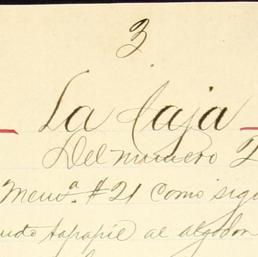 3
La Caja
Del número 2
Memª. #21 como sigu
tapapié al algodon